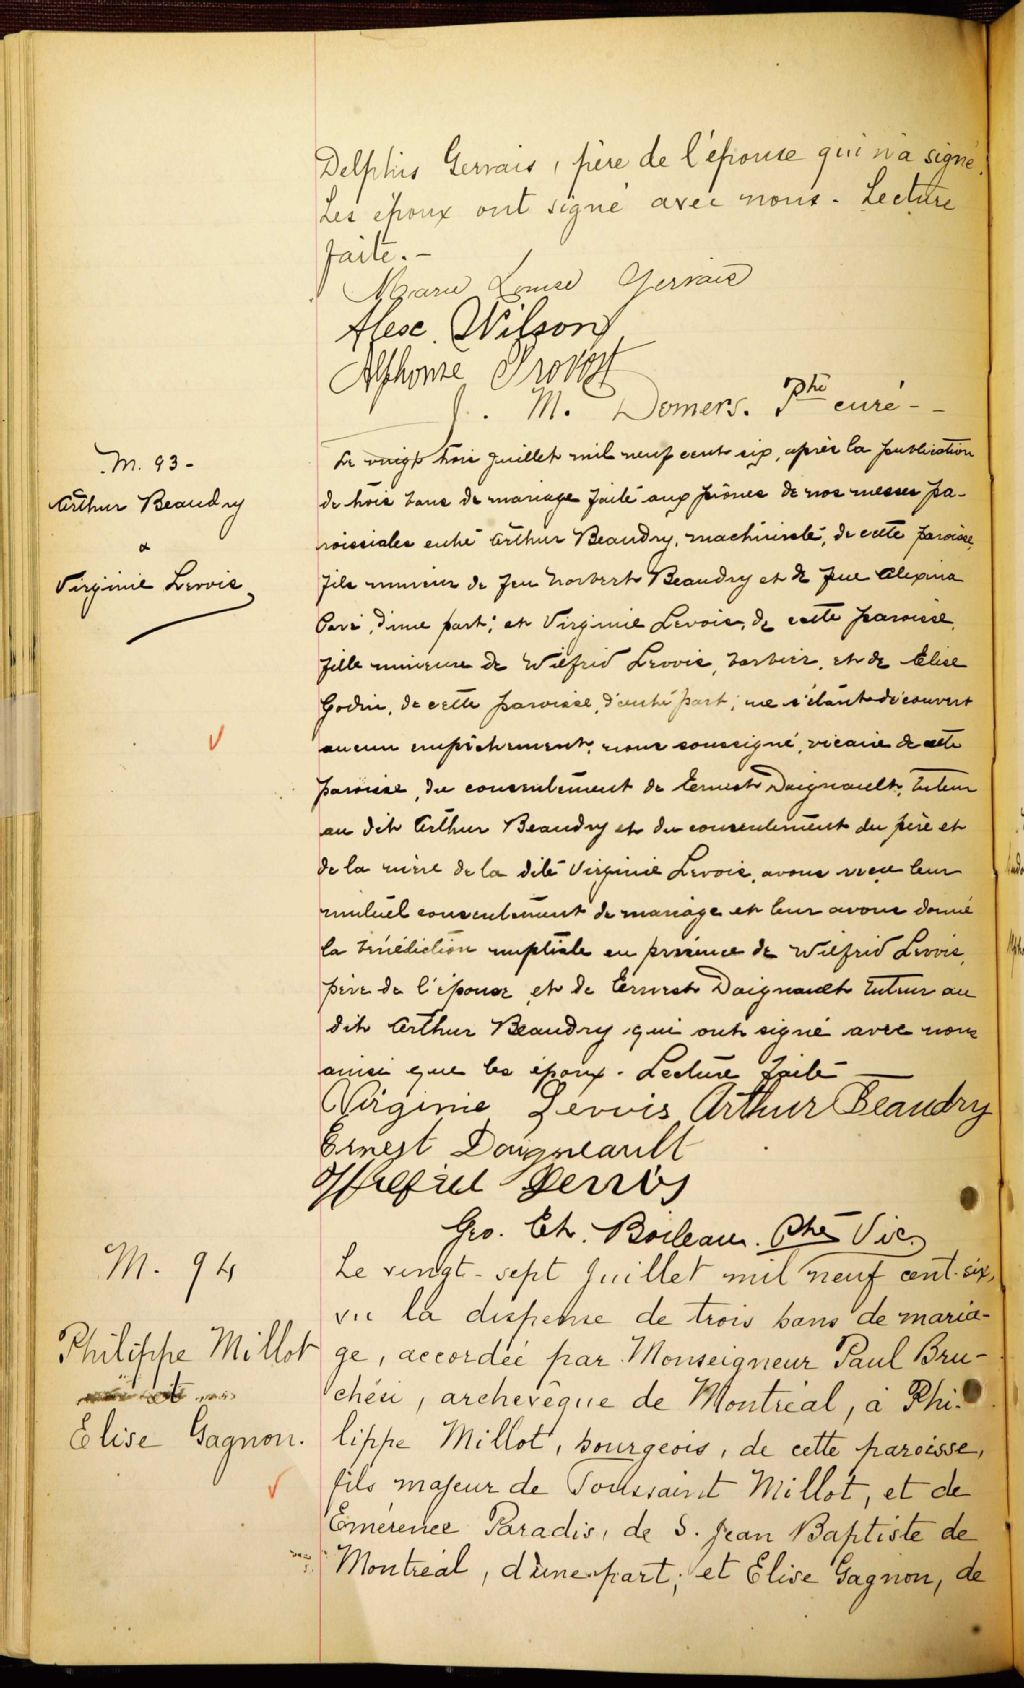 Delphis Gervais, père de l'épouse qui n'a signé.
Les époux ont signé avec nous. Lecture
faite. -
Marie Louise Gervais
Alex. Wilson
Alphonse Provost
J. M. Demers. Ptre curé - -
M. 93 -
Arthur Beaudry
&
Virginie Lervis
Le vingt trois juillet mil neuf cent six, après la publication
de trois bans de mariage faite aux prônes de nos messes pa-
roissiales entre Arthur Beaudry, machiniste, de cette paroisse,
fils mineur de feu Norbert Beaudry et de feue Alexina
Paré, d'une part; et Virginie Lervis, de cette paroisse,
fille mineure de Wilfrid Lervis, barbier, et de Elise
Godin, de cette paroisse, d'autre part; ne s'étant découvert
aucun empêchement, nous soussigné, vicaire de cette
paroisse, du consentement de Ernest Daigneault, tuteur
au dit Arthur Beaudry et du consentement du père et
de la mère de la dite Virginie Lervis, avons reçu leur
mutuel consentement de mariage et leur avons donné
la bénédiction nuptiale en présence de Wilfrid Lervis,
père de l'épouse, et de Ernest Daigneault tuteur au
dit Arthur Beaudry qui ont signé avec nous
ainsi que les époux. Lecture faite
Virginie Lervis Arthur Beaudry
Ernest Daigneault
Wilfrid Lervis
Geo. Et. Boileau. Ptre Vic.
M. 94
Philippe Millot
et
Elise Gagnon.
Le vingt-sept Juillet mil neuf cent-six,
vu la dispense de trois bans de maria-
ge, accordée par Monseigneur Paul Bru-
chési, archevêque de Montréal, à Phi-
lippe Millot, bourgeois, de cette paroisse,
fils majeur de Toussaint Millot, et de
Emérence Paradis, de S. Jean Baptiste de
Montréal, d'une part; et Elise Gagnon, de